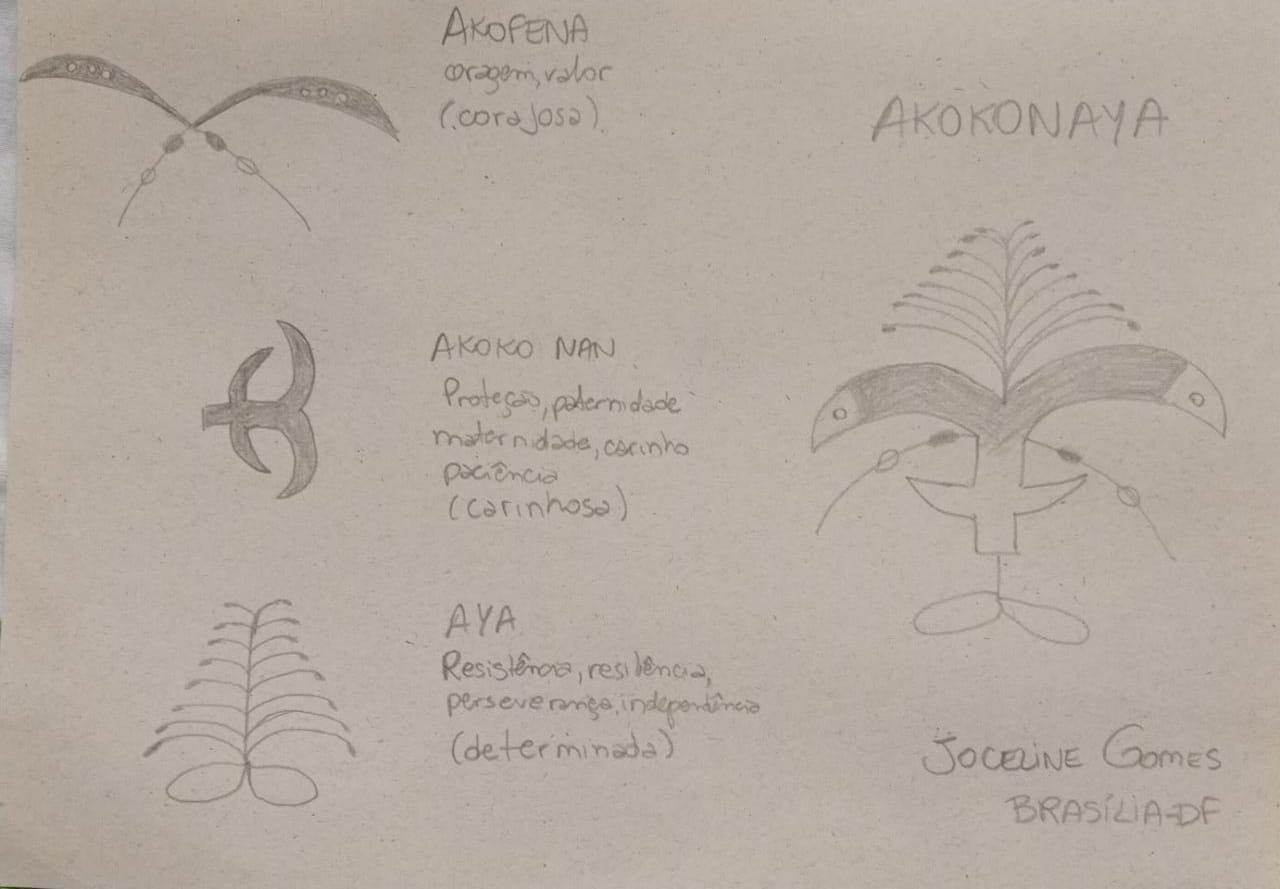 AKOFENA
coragem, valor
(corajosa)
AKOKO NAN
Proteção, paternidade
maternidade, carinho
paciência
(carinhosa)
AYA
Resistência, resiliência,
perseverança, independência
(determinada)
AKOKONAYA
JOCELINE GOMES
BRASÍLIA-DF